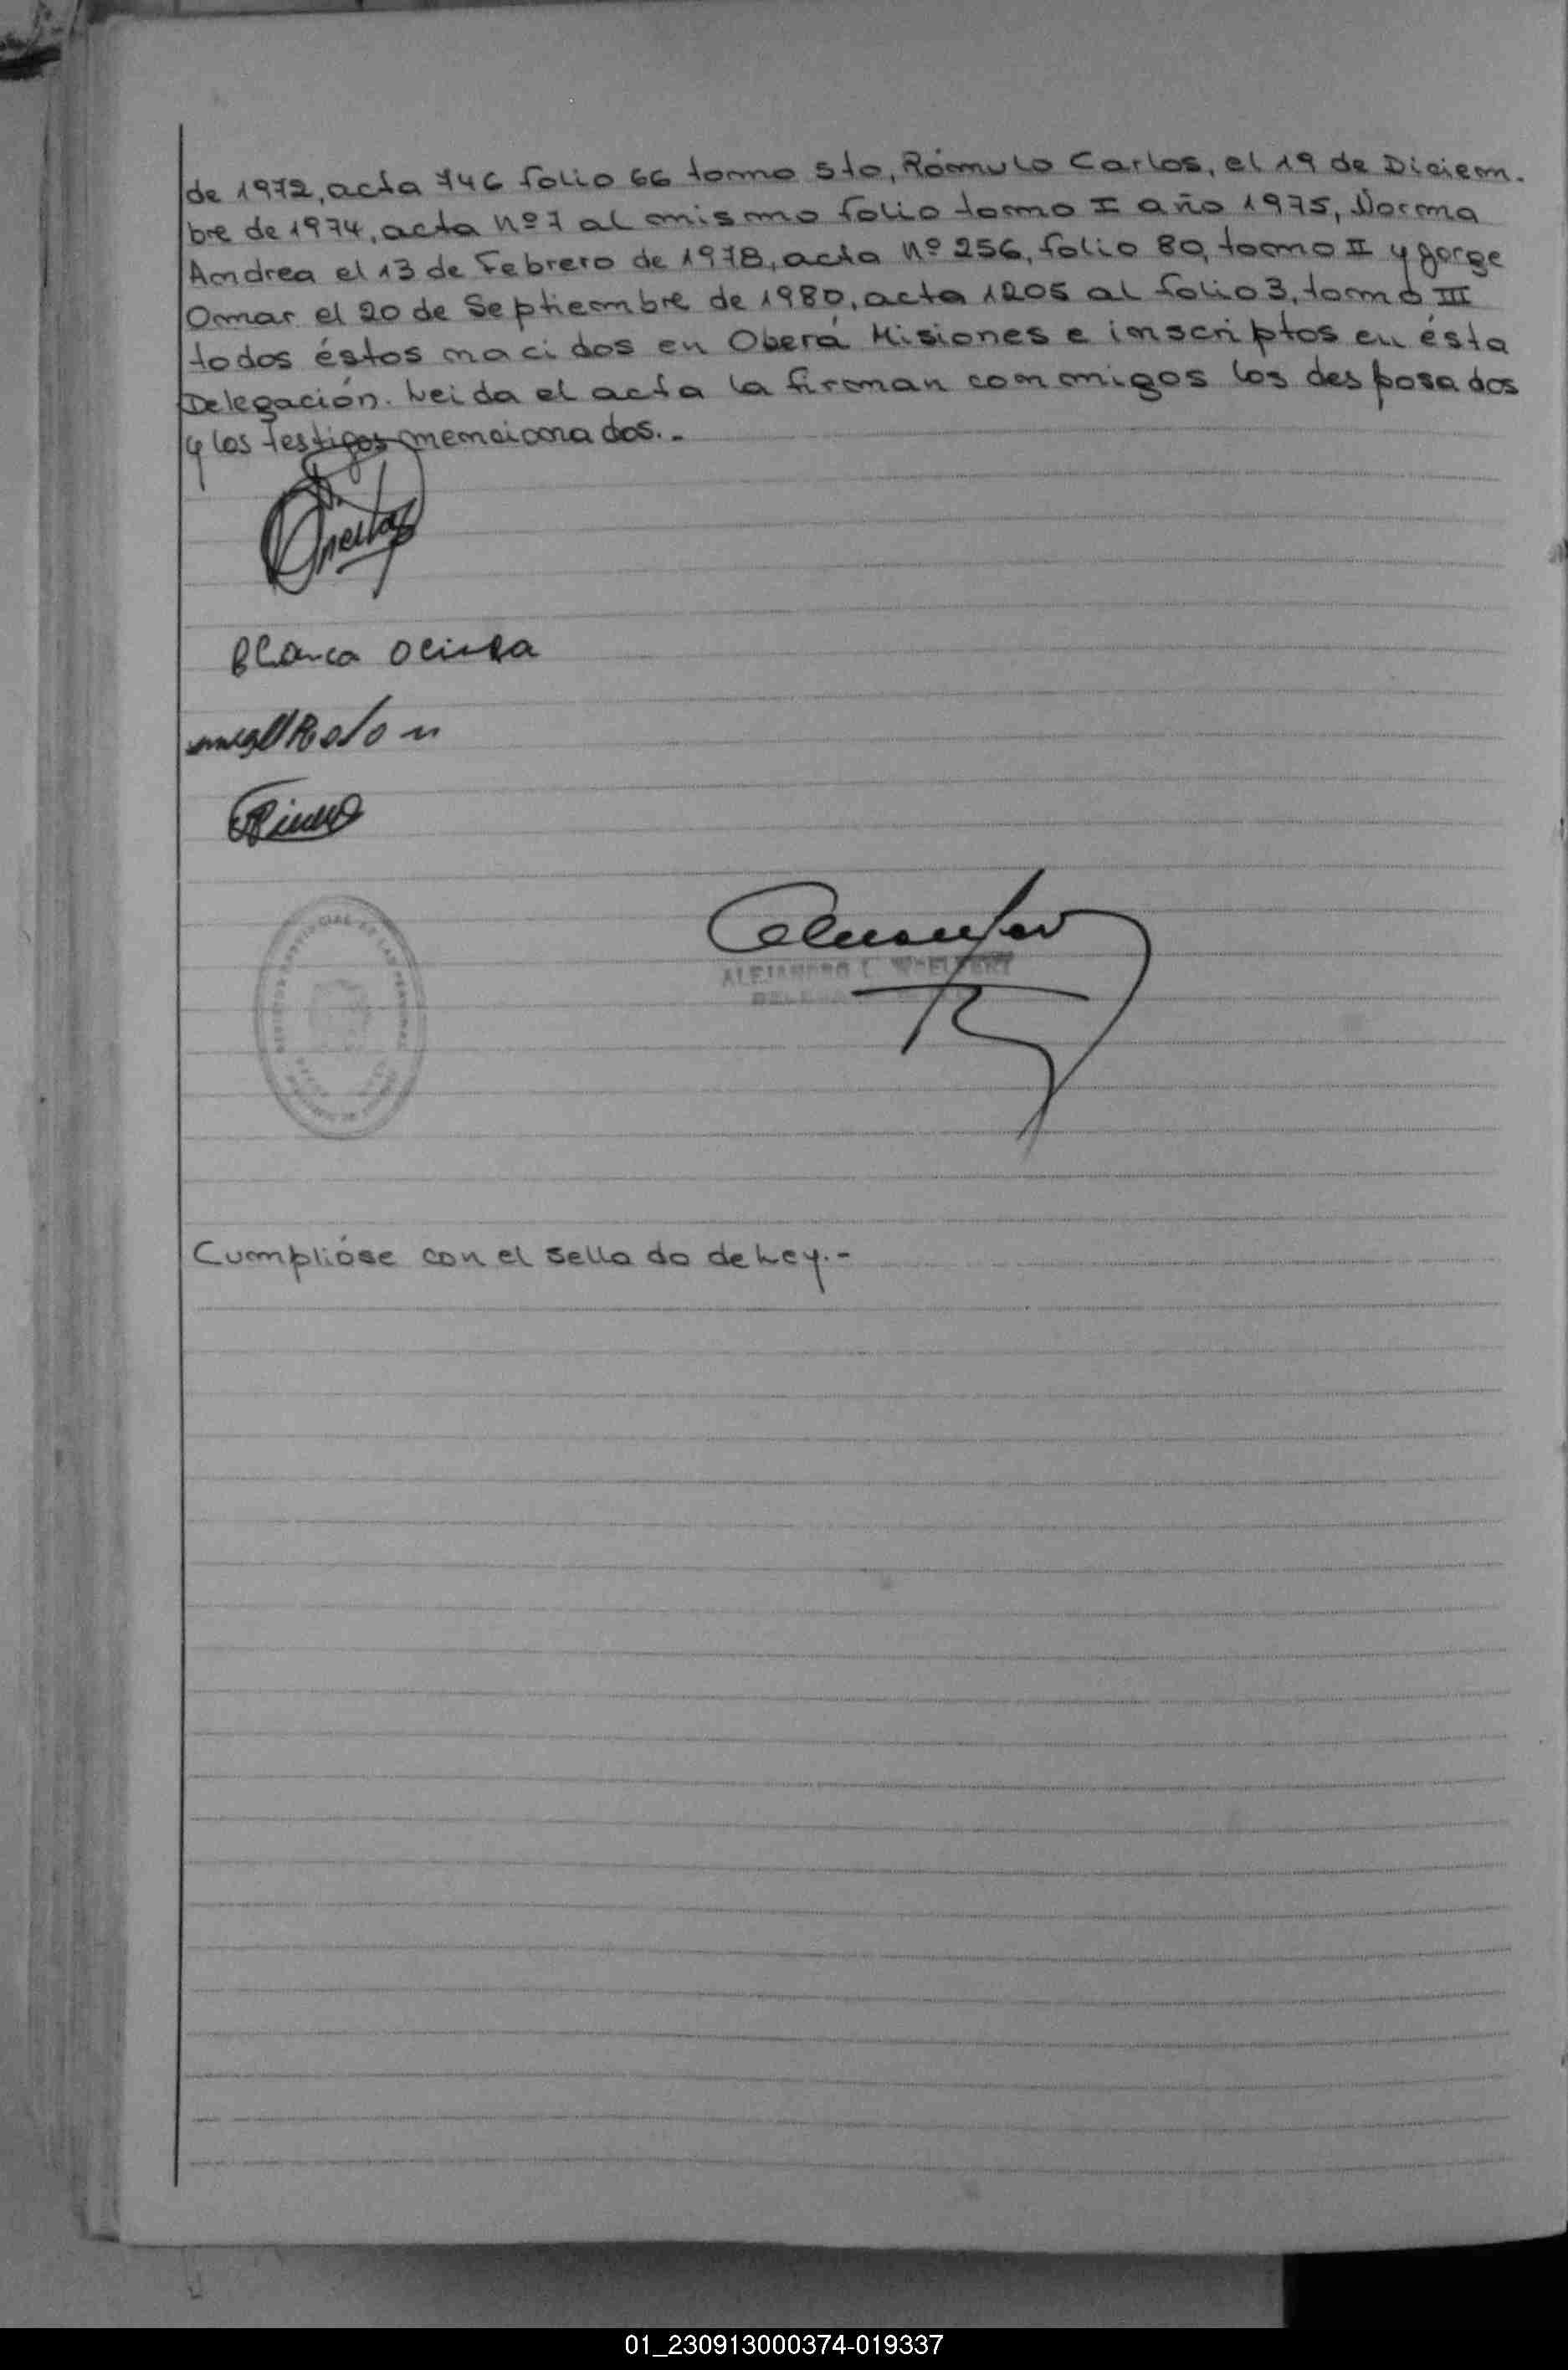 de 1972, acta 746 folio 66 tomo 5to, Rómulo Carlos, el 19 de Diciem-
bre de 1974, acta nº 7 al mismo folio tomo I año 1975, Norma
Andrea el 13 de Febrero de 1978, acta nº 256, folio 80, tomo II y Jorge
Omar el 20 de Septiembre de 1980, acta 1205 al folio 3, tomo III
todos éstos nacidos en Oberá Misiones e inscriptos en ésta
Delegación. Leida el acta la firman conmigos los desposados
y los testigos mencionados.-
Blanca
ALEJANDRO
Cumplióse con el sellado de Ley.-
01_230913000374-019337